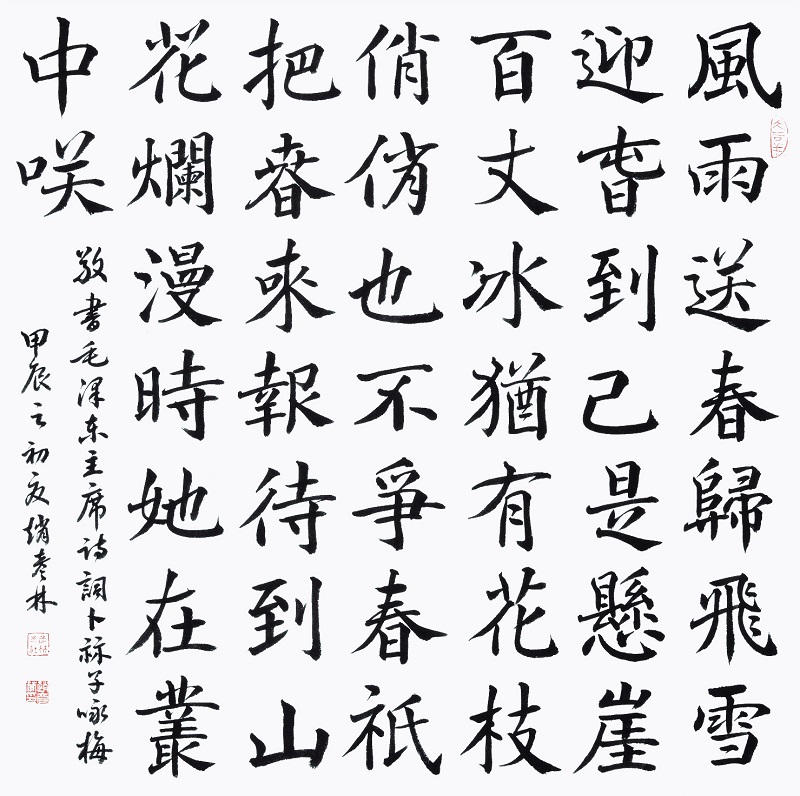 風雨送春歸飛雪
迎旾到已是懸崖
百丈冰猶有花枝
俏俏也不爭春祇
把萅來報待到山
花爛漫時她在叢
中咲
敬書毛泽东主席诗詞卜祘子咏梅
甲辰之初夏趙彦林